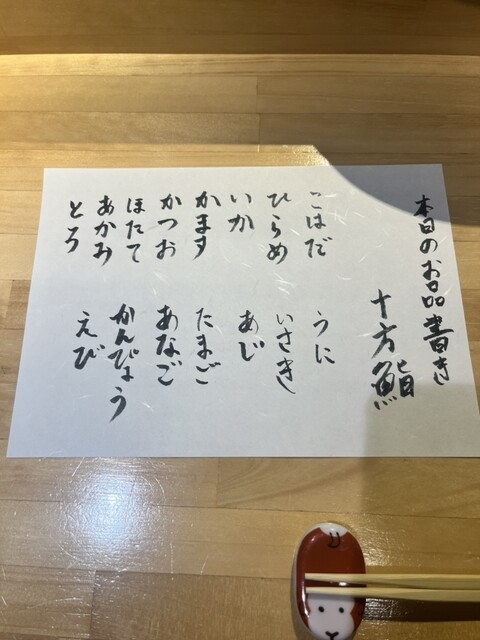 本日のお品書き
十方鮨
こはだ
ひらめ
いか
かます
かつお
ほたて
あかみ
とろ
うに
いさき
あじ
たまご
あなご
かんぴょう
えび